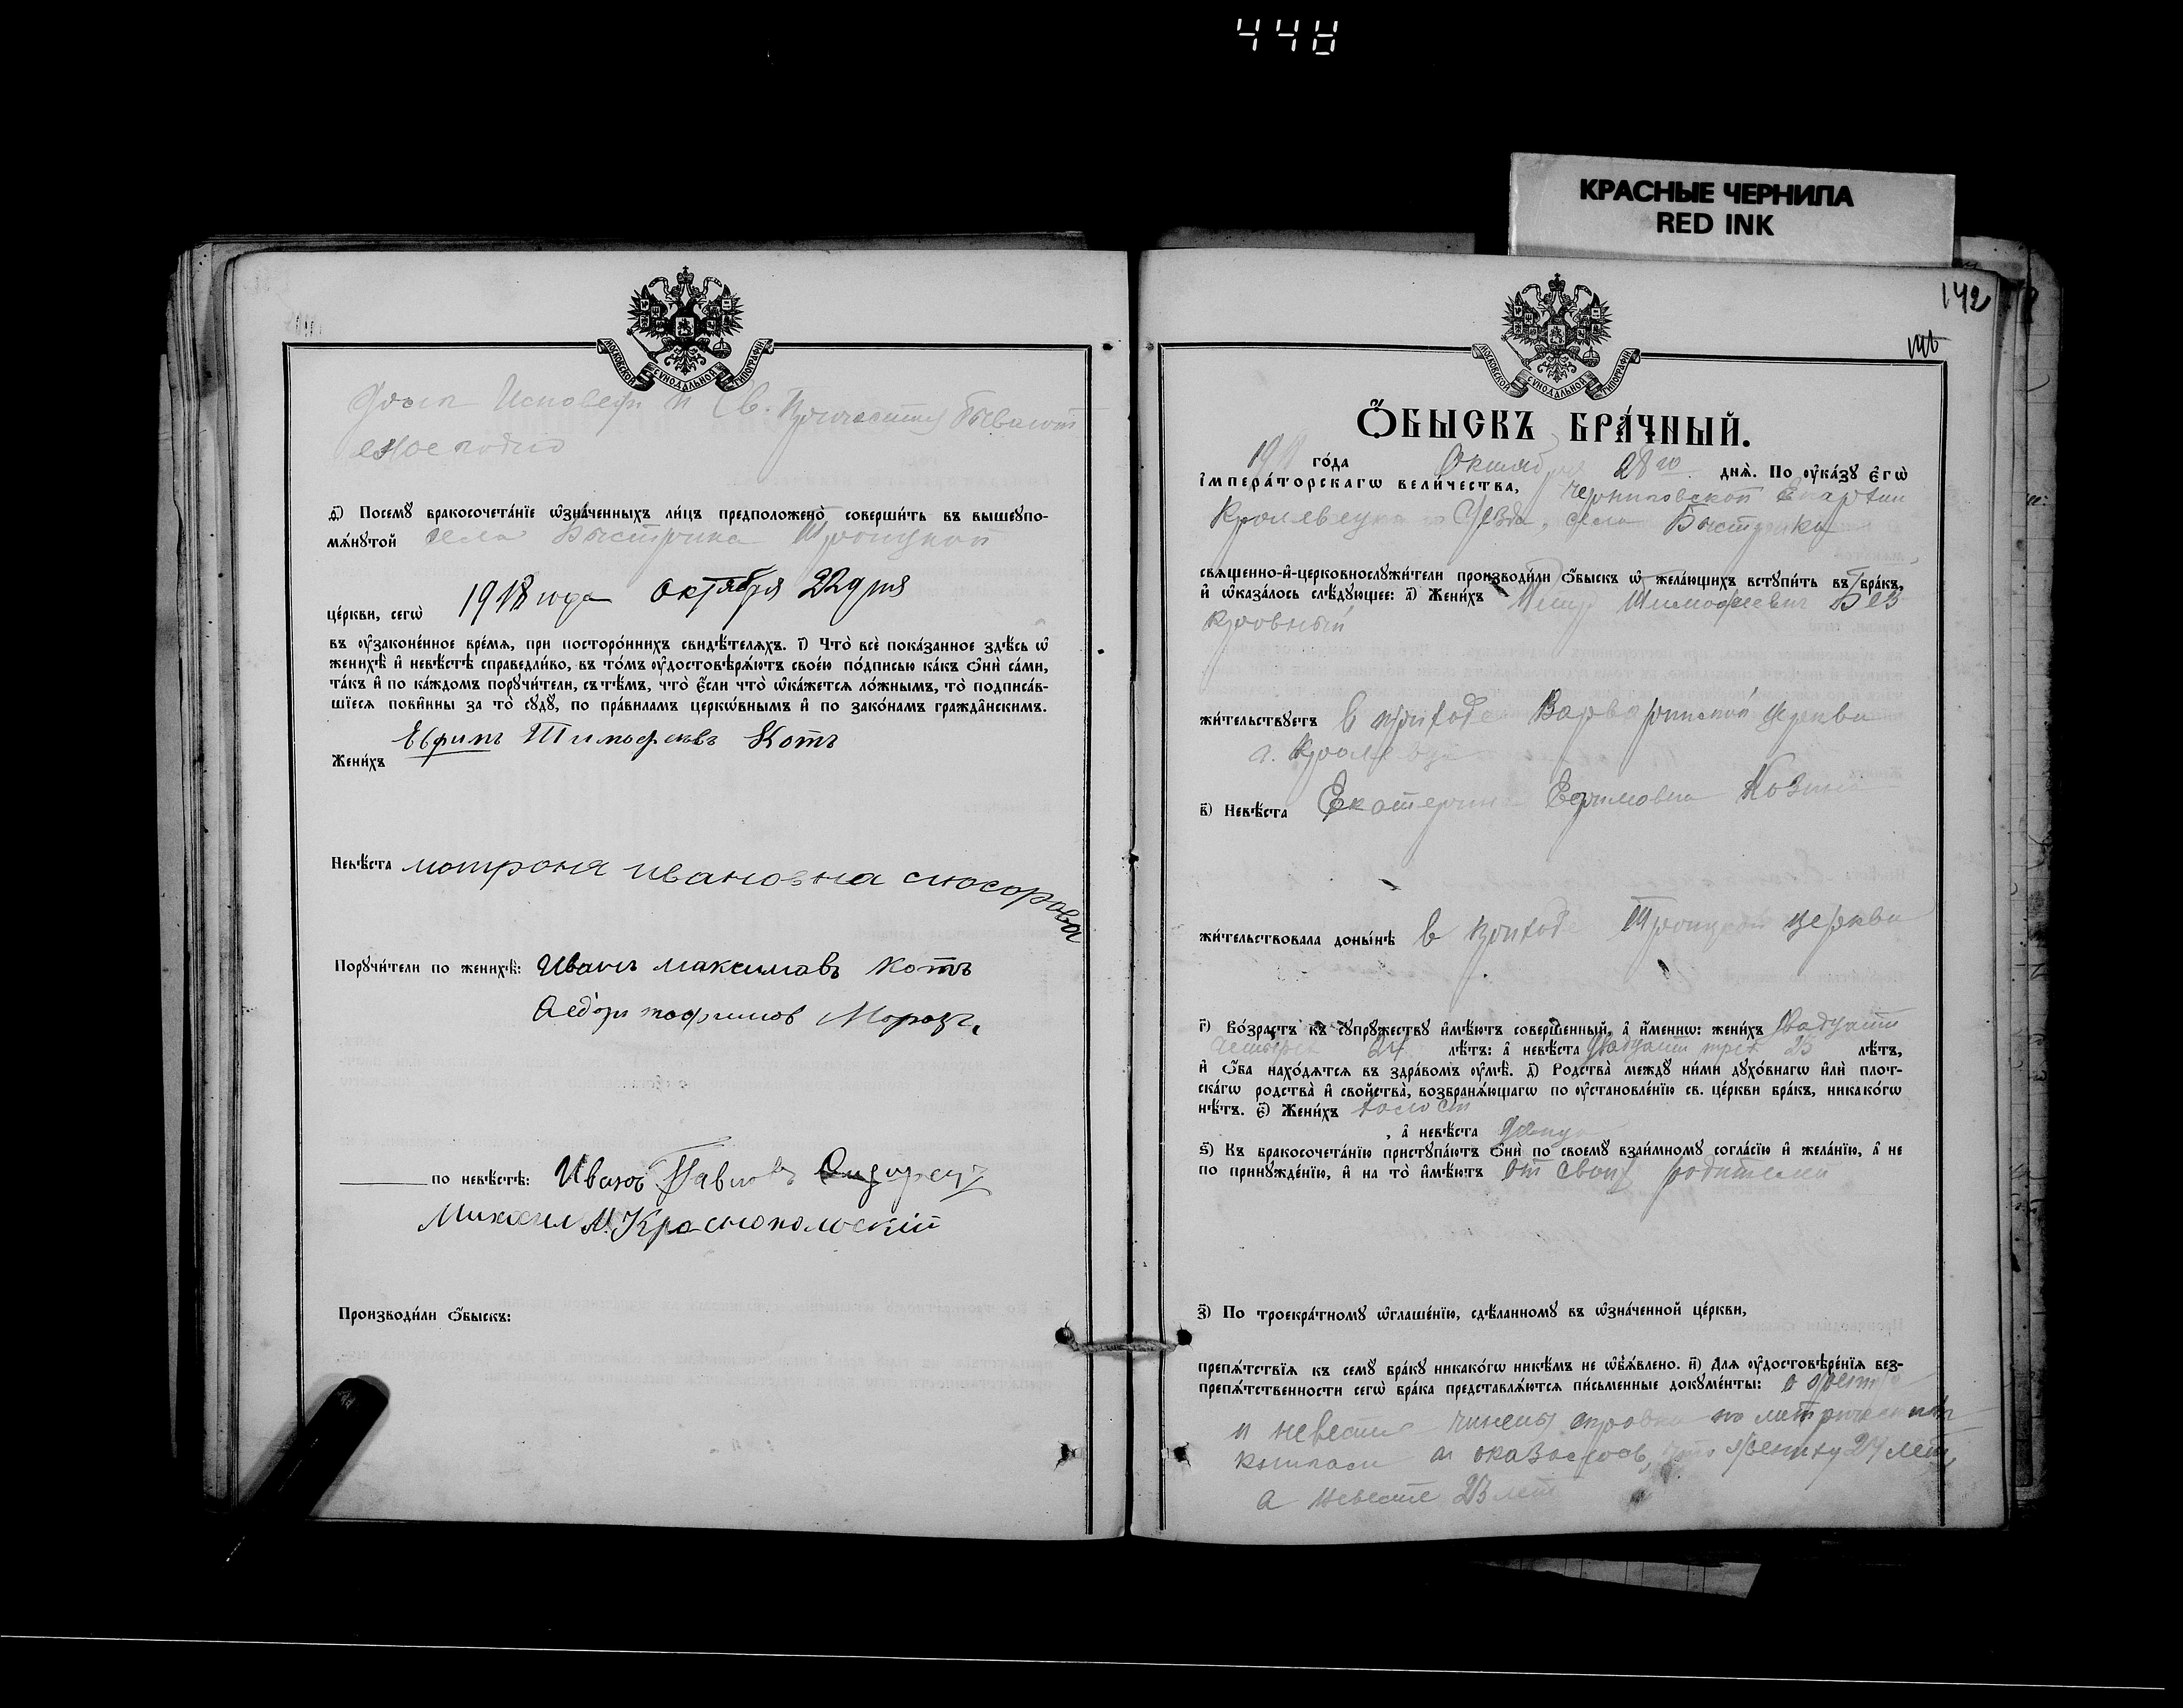 448
КРАСНЫЕ ЧЕРНИЛА
RED INK
МОСКОВСКОЙ СУНОДАЛЬНОЙ ТИПОГРАФІИ
Исповеди и Св. Причастия бывают
ежегодно
д҃) Посемꙋ бракосочета́нїе ѡ҆зна́ченныхъ ли́цъ предположено̀ соверши́ть въ вышеꙋпо-
мѧ́нꙋтой села Быстрика Троицкой
це́ркви, сегѡ̀ 1918 года октября 22 дня
въ ᲂу҆законе́нное вре́мѧ, при посторо́ннихъ свидѣ́телѧхъ. і҃) Что̀ всѐ пока́занное здѣ́сь ѡ҆
женихѣ̀ и҆ невѣ́стѣ справедли́во, въ то́мъ ᲂу҆достовѣрѧ́ютъ свое́ю по́дписью ка́къ ѻ҆нѝ са́ми,
та́къ и҆ по ка́ждомъ порꙋчи́тели, съ тѣ́мъ, что̀ є҆́сли что̀ ѡ҆ка́жетсѧ ло́жнымъ, то̀ подписа́в-
шїесѧ пови́нны за то̀ сꙋдꙋ̀, по пра́виламъ церкѡ́внымъ и҆ по зако́намъ гражда̑нскимъ.
Евфимъ Тимофеевъ Котъ
Жени́хъ
Невѣ́ста мотроня ивановна слюсорова
Порꙋчи́тели по женихѣ̀: Иванъ максимавъ котъ
Морозъ
по невѣ́стѣ: Иванъ Павловъ
Михаил М. Краснопольскій
Производи́ли ѻ҆́быскъ:
142
МОСКОВСКОЙ СУНОДАЛЬНОЙ ТИПОГРАФІИ
Ѻ҆́БЫСКЪ БРА́ЧНЫЙ.
го́да Октября 28го днѧ̀. По ᲂу҆ка́зꙋ є҆гѡ̀
і҆мпера́торскагѡ вели́чества, Черниговской Епархии
Кролевецкого Уезда, села Быстрика
свѧще́нно-и҆-церковнослꙋжи́тели производи́ли ѻ҆́быскъ ѡ҆ жела́ющихъ встꙋпи́ть въ бра́къ,
и҆ ѡ҆каза́лось слѣ́дꙋющее: а҃) Жени́хъ Петр Тимофеевич Без
кровный
жи́тельствꙋетъ в приходе Варваринской церкви
г. Кролевца
в҃) Невѣ́ста Екатерина Ефимовна
жи́тельствовала доны́нѣ в приходе Троицкой церкви
г҃) Во́зрастъ къ сꙋпрꙋ́жествꙋ и҆мѣ́ютъ соверше́нный, а҆ и҆́меннѡ: жени́хъ двадцати
четырех 24 лѣ́тъ: а҆ невѣ́ста двадцати трех 23 лѣ́тъ,
и҆ ѻ҆́ба нахо́дѧтсѧ въ здра́вомъ ᲂу҆мѣ̀. д҃) Родства̀ междꙋ ни́ми дꙋхо́внагѡ и҆лѝ плот-
ска́гѡ родства̀ и҆ сво́йства, возбранѧ́ющагѡ по ᲂу҆становле́нїю св. це́ркви бра́къ, никако́гѡ
нѣ́тъ. є҃) Жени́хъ холост
, а҆ невѣ́ста девица
ѕ҃) Къ бракосочета́нїю пристꙋпа́ютъ ѻ҆нѝ по своемꙋ̀ взаи́мномꙋ согла́сїю и҆ жела́нїю, а҆ не
по принꙋжде́нїю, и҆ на то̀ и҆мѣ́ютъ от своих родителей
з҃) По троекра́тномꙋ ѡ҆глаше́нїю, сдѣ́ланномꙋ въ ѡ҆зна́ченной це́ркви,
препѧ́тствїѧ къ семꙋ̀ бра́кꙋ никако́гѡ никѣ́мъ не ѡ҆б̾ѧ́влено. и҃) Длѧ ᲂу҆достовѣре́нїѧ без-
препѧ́тственности сегѡ̀ бра́ка представлѧ́ютсѧ пи́сьменные докꙋме́нты: о женихе
и невесте чинены справки по метрическим
книгам и оказалось, что жениху 24 лет,
а невесте 23 лет